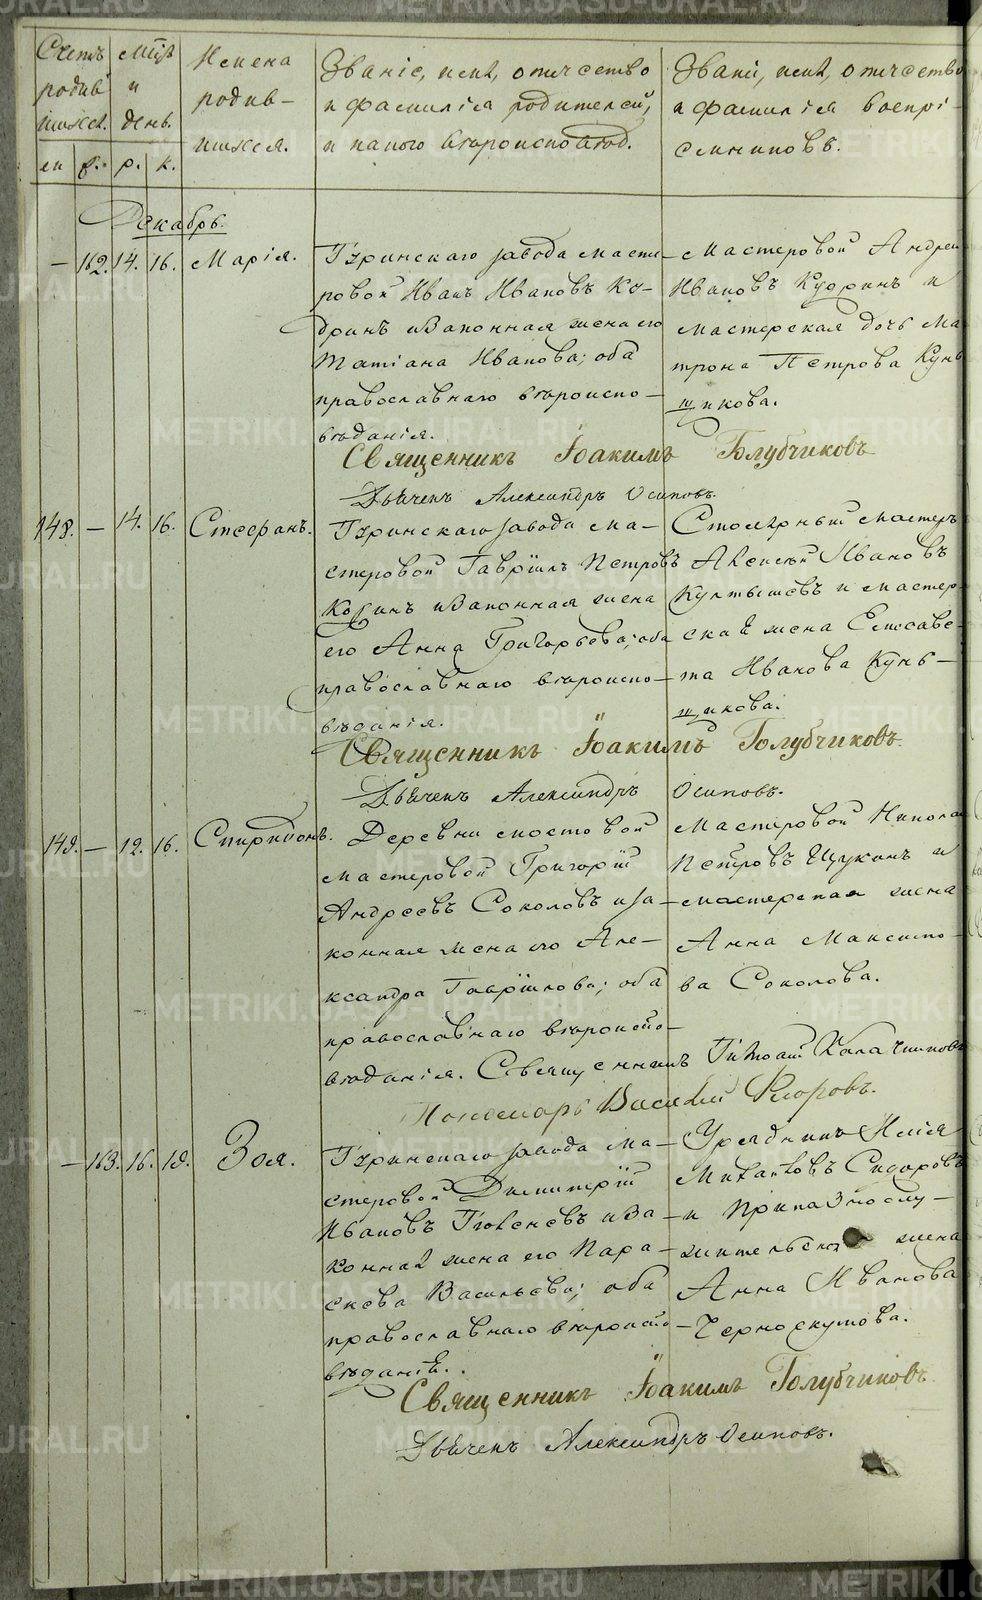 Счетъ родив
шихся.
м. ж.
Мѣся.
и
день.
р. к.
Имена
родив-
шихся.
Званіе, имя, отчество
и фамилія родителей,
и какого вѣроисповѣд.
Званіе, имя, отчество
и фамилія воспрі-
емниковъ.
Декабрь.
— 162. 14. 16. Марія.
Туринскаго завода масте-
ровой Иванъ Ивановъ Ку-
дринъ и законная жена его
Татіана Иванова; оба
православнаго вѣроиспо-
вѣданія.
Мастеровой Андрей
Ивановъ Кудринъ и
мастерская дочь Ма
трона Петрова Кунь
щикова.
Священникъ Іоакимъ Голубчиковъ
Дьяченъ Александръ Осиповъ.
148. — 14. 16. Стефанъ.
Туринскаго завода ма-
стеровой Гавріилъ Петровъ
Козинъ и законная жена
его Анна Григорьева; оба
православнаго вѣроиспо-
вѣданія.
Столярный мастеръ
Алексѣй Ивановъ
Култышевъ и мастер-
ская жена Елисаве-
та Иванова Кунь-
щикова.
Священникъ Іоакимъ Голубчиковъ.
Дьяченъ Александръ Осиповъ.
149. — 12. 16. Спиридонъ.
Деревни мостовой
мастеровой Григорій
Андреевъ Соколовъ и за-
конная жена его Але-
ксандра Гаврилова; оба
православнаго вѣроиспо-
вѣданія.
Мастеровой Никола
Петровъ Щукинъ и
мастерская жена
Анна Максимо-
ва Соколова.
Священникъ Калачниковъ
Пономарь Василій Флоровъ.
— 163. 16. 19. Зоя.
Туринскаго завода ма-
стеровой Димитрій
Ивановъ и за-
конная жена его Пара-
скева Васильева; оба
православнаго вѣроиспо-
вѣданія.
Урядникъ Илія
Михайловъ Сидоровъ
и Приказнослу-
жительская жена
Анна Иванова
Черноскутова.
Священникъ Іоакимъ Голубчиковъ.
Дьяченъ Александръ Осиповъ.
METRIKI.GASO-URAL.RU